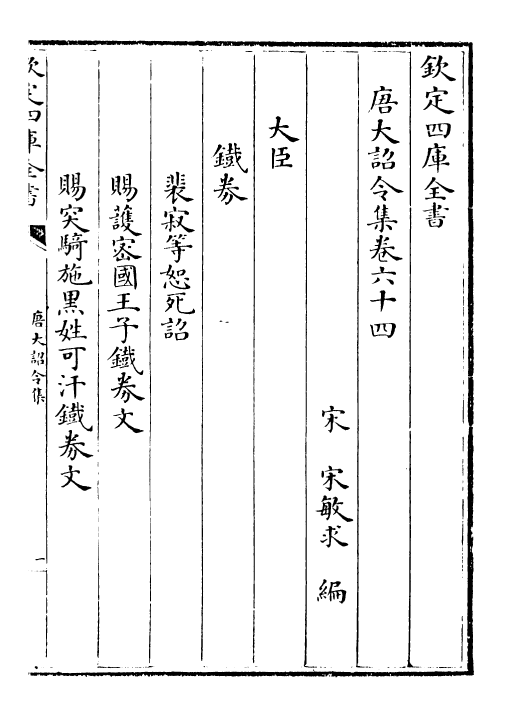 欽定四庫全書
唐大詔令集卷六十四
宋　宋敏求　編
大臣
鐵券
裴寂等恕死詔
賜護密國王子鐵券文
賜突騎施黑姓可汗鐵券文
欽定四庫全書
唐大詔令集
一